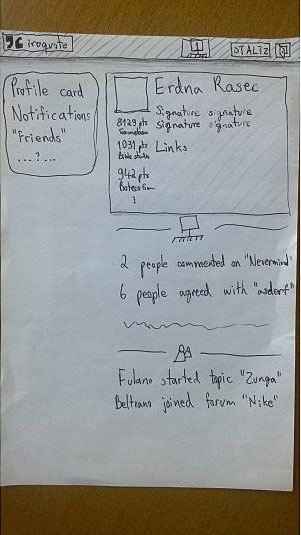 iroquote
STALTZ
Profile card
Notifications
"Friends"
...?...
Erdna Rasec
Signature signature
Signature signature
Links
8129 pts
Gamebox
1031 pts
942 pts
Boteco Gam
2 people commented on "Nevermind"
6 people agreed with "asderf"
Fulano started topic "Zunga"
Beltrano joined forum "Nike"